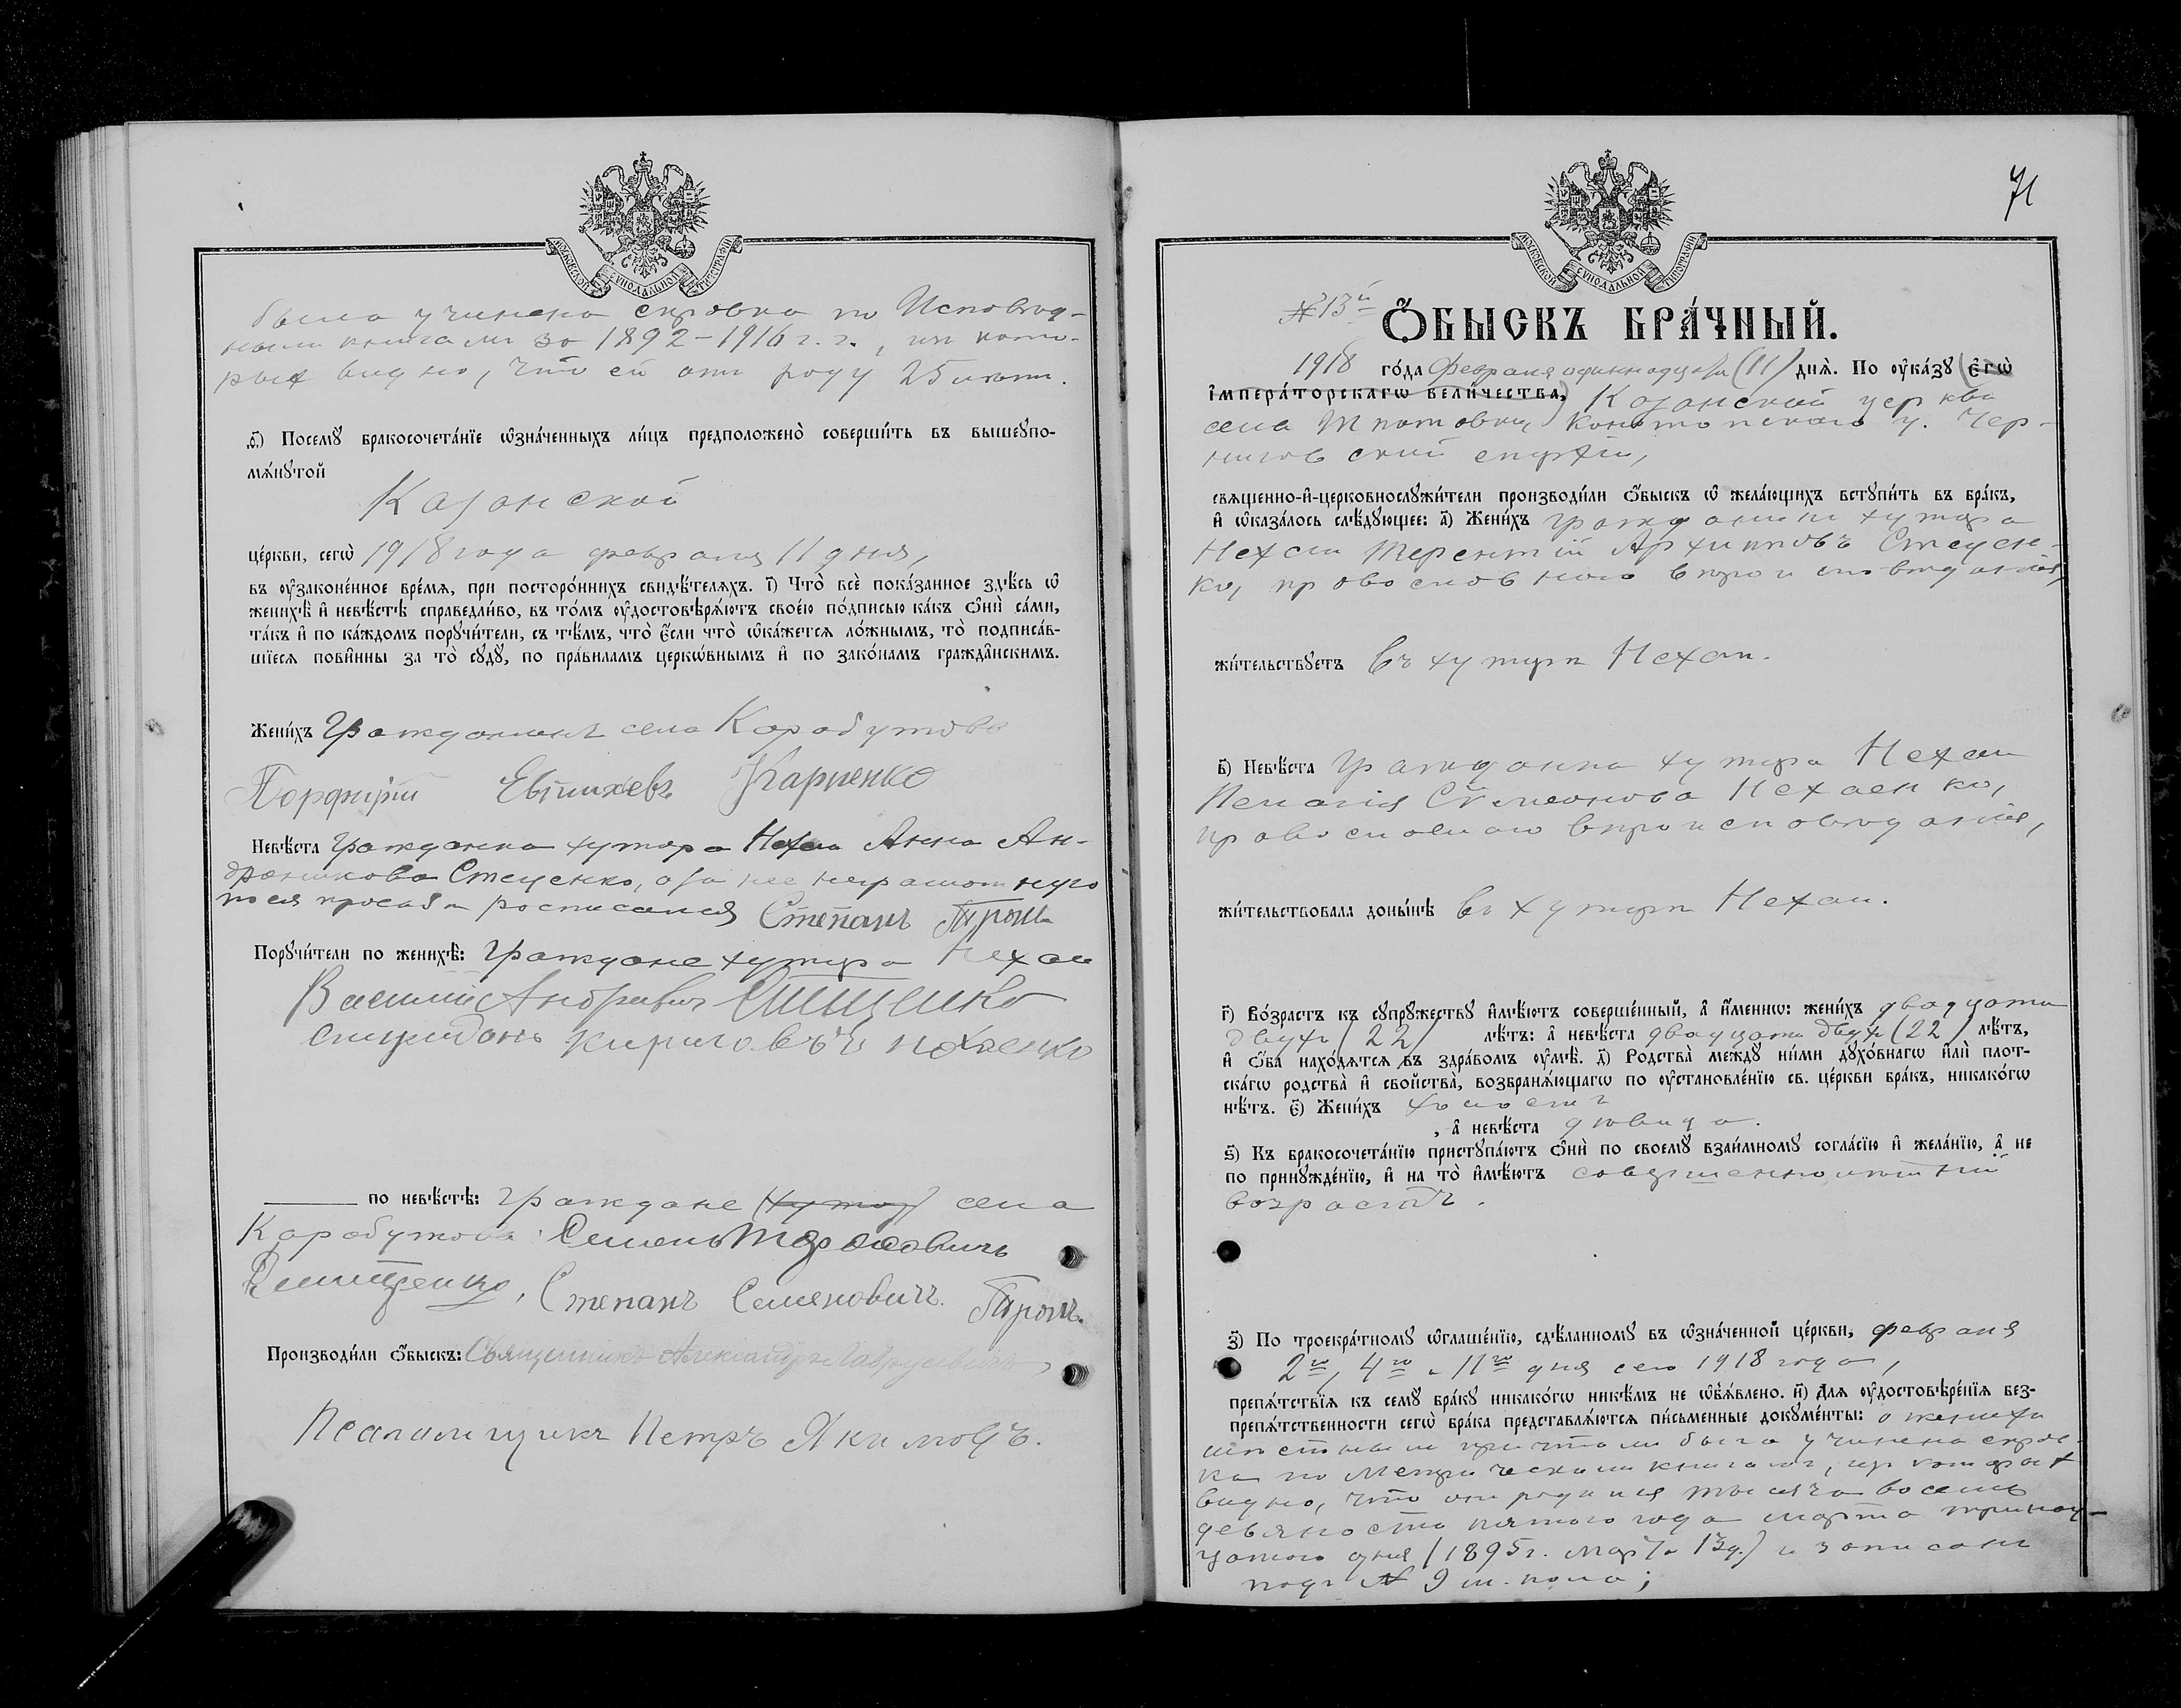 МОСКОВСКОЙ СѴНОДАЛЬНОЙ ТИПОГРАФІИ
была учинена справка по Исповѣд-
нымъ книгамъ за 1892-1916 г.г., изъ кото-
рыхъ видно, что ей отъ роду 25 лѣтъ.
є҃) Посемꙋ̀ бракосочета́нїе ѡ҆зна́ченныхъ ли́цъ предположено̀ соверши́ть въ вышеꙋпо-
мѧ́нꙋтой
Казанской
це́ркви, сегѡ̀ 1918 года февраля 11 дня,
въ ᲂу҆зако́ненное вре́мѧ, при посторо́ннихъ свидѣ́телѧхъ. і҃) Что̀ всѐ пока́занное здѣ́сь ѡ҆
женихѣ̀ и҆ невѣ́стѣ справедли́во, въ то́мъ ᲂу҆достовѣрѧ́ютъ свое́ю по́дписью ка́къ ѻ҆нѝ са́ми,
та́къ и҆ по ка́ждомъ порꙋчи́тели, съ тѣ́мъ, что̀ є҆́сли что̀ ѡ҆ка́жетсѧ ло́жнымъ, то̀ подписа́в-
шїесѧ пови́нны за то̀ сꙋдꙋ̀, по пра́виламъ церкѡ́внымъ и҆ по зако́намъ гражда̂нскимъ.
Жени́хъ Гражданинъ села Карабутова
Порфирій Евтихіевъ Карпенко
Невѣ́ста Гражданка хутора Нехаи Анна Ан-
дроникова Стеценко, а за нее неграмотную
по ея просьбѣ росписался Степанъ
Порꙋчи́тели по женихѣ̀: Граждане хутора Нехаи
Василій Андреевич
Спиридонъ Кириловъ нехаенко
по невѣ́стѣ: Граждане (хутор) села
Карабутова: Семенъ Тарасовичъ
Степанъ Семеновичъ
Производи́ли ѻ҆́быскъ: Священникъ Александръ
Псаломщикъ Петръ Якимовъ.
71
МОСКОВСКОЙ СѴНОДАЛЬНОЙ ТИПОГРАФІИ
№ 13й
Ѻ҆́БЫСКЪ БРА́ЧНЫЙ.
1918 го́да Февраля одиннадцат (11) днѧ̀. По ᲂу҆ка́зꙋ (є҆гѡ̀
і҆мпера́торскагѡ вели́чества,) Казанской церкви
села Тиловки Конотопскаго у. Чер-
ниговской епархіи,
свѧще́нно-и҆-церковнослꙋжи́тели производи́ли ѻ҆́быскъ ѡ҆ жела́ющихъ встꙋпи́ть въ бра́къ,
и҆ ѡ҆каза́лось слѣ́дꙋющее: а҃) Жени́хъ гражданинъ хутора
Нехаи Терентій Архиповъ Стецен-
ко, православнаго вѣроисповѣданія,
жи́тельствꙋетъ въ хуторѣ Нехаи.
в҃) Невѣ́ста Гражданка хутора Нехаи
Пелагія Сѵмеонова Нехаенко,
православнаго вѣроисповѣданія,
жи́тельствовала доны́нѣ въ хуторѣ Нехаи.
г҃) Во́зрастъ къ сꙋпрꙋ́жествꙋ и҆мѣ́ютъ соверше́нный, а҆ и҆́меннѡ: жени́хъ двадцати
двухъ (22) лѣ́тъ: а҆ невѣ́ста двадцати двухъ (22) лѣ́тъ,
и҆ ѻ҆́ба нахо́дѧтсѧ въ здра́вомъ ᲂу҆мѣ̀. д҃) Родства̀ междꙋ̀ ни́ми дꙋхо́внагѡ и҆лѝ плот-
ска́гѡ родства̀ и҆ сво́йства̀, возбранѧ́ющагѡ по ᲂу҆становле́нїю св. це́ркви бра́къ, никако́гѡ
нѣ́тъ. є҃) Жени́хъ холостъ
, а҆ невѣ́ста дѣвица.
ѕ҃) Къ бракосочета́нїю пристꙋпа́ютъ ѻ҆нѝ по своемꙋ̀ взаи́мномꙋ согла́сїю и҆ жела́нїю, а҆ не
по принꙋжде́нїю, и҆ на то̀ и҆мѣ́ютъ совершеннолѣтній
возрастъ.
з҃) По троекра́тномꙋ ѡ҆глаше́нїю, сдѣ́ланномꙋ въ ѡ҆зна́ченной це́ркви, февраля
2го, 4го и 11го дня сего 1918 года,
препѧ́тствїѧ къ семꙋ̀ бра́кꙋ никако́гѡ никѣ́мъ не ѡ҆б̾ѧ́влено. и҃) Длѧ ᲂу҆достовѣре́нїѧ без-
препѧ́тственности сегѡ̀ бра́ка представлѧ́ютсѧ пи́сьменные докꙋме́нты: о женихѣ
мѣстнымъ причтомъ была учинена справ-
ка по Метрическимъ книгамъ, изъ которыхъ
видно, что онъ родился тысяча восемь
девяносто пятого года марта тринад-
цатого дня (1895 г. марта 13 д.) и записанъ
подъ № 9 м. пола;